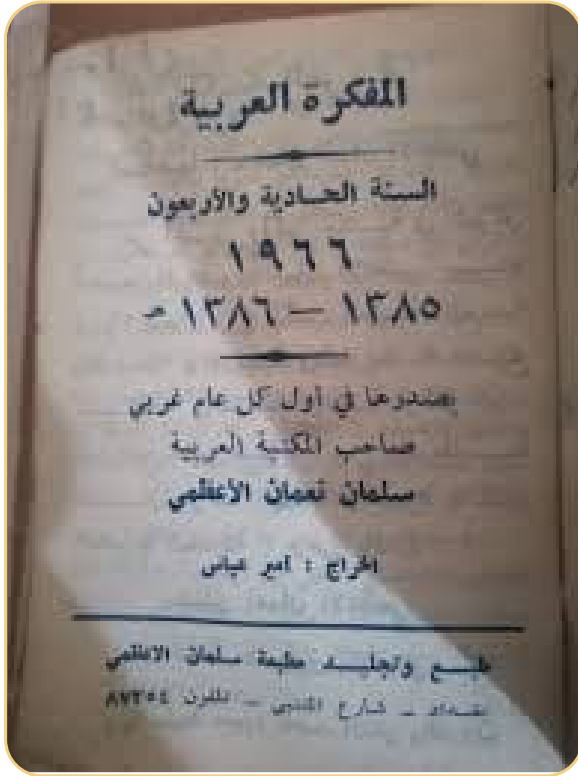 المفكرة العربية
السنة الحادية والأربعون
١٩٦٦
١٣٨٥ — ١٣٨٦ هـ
يصدرها في أول كل عام غربي
صاحب المكتبة العربية
سلمان نعمان الأعظمي
اخراج : امير عباس
طبع وتجليد مطبعة سلمان الاعظمي
بغداد - شارع المتنبي - تلفون ٨٧٣٥٤